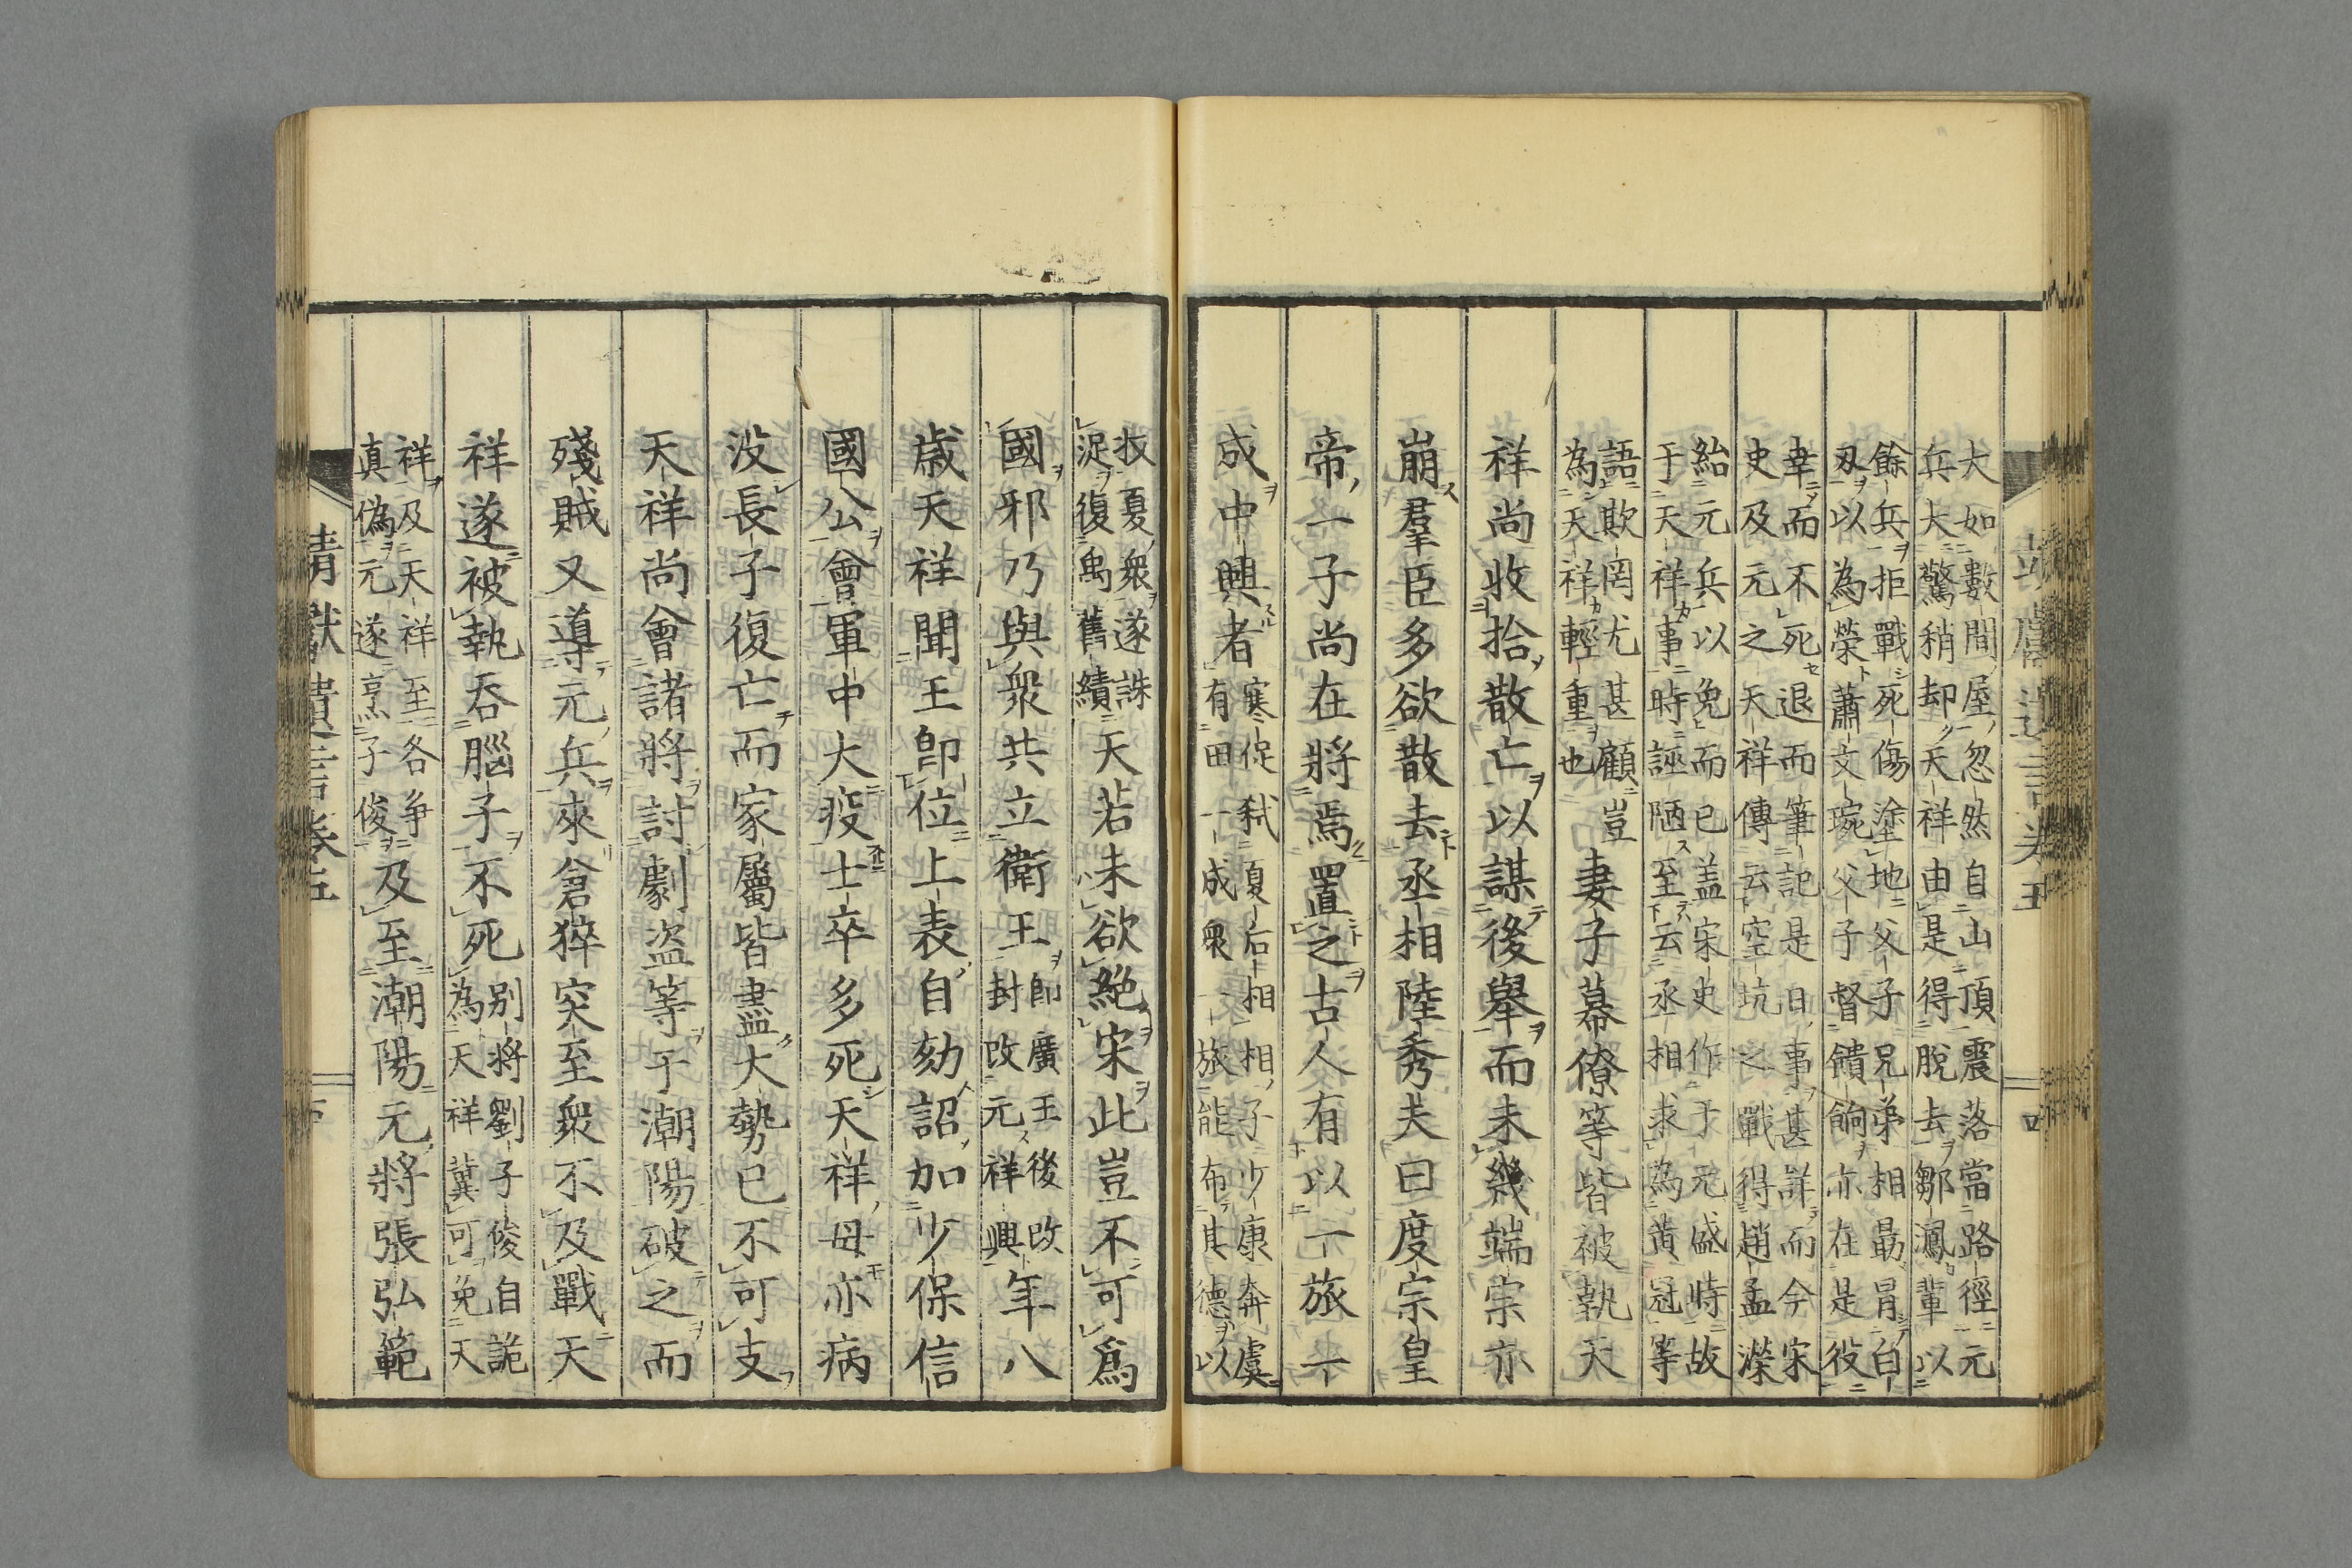 大如數間屋忽然自山頂震落當路徑元
兵大驚稍却天祥由是得脫去鄒㵯輩以
餘兵拒戰死傷塗地父子兄弟相勗冐白
刄以為榮蕭文琬父子督饋餉亦在是役
幸而不死退而筆記是日事甚詳而今宋
史及元之天祥傳云空坑之戰得趙孟濚
紿元兵以免而已盖宋史作于元盛時故
于天祥事時誣陋至云丞相求為黄冠等
語欺罔尤甚顧豈
為天祥輕重也
妻子幕僚等皆被執天
祥尚收拾散亡以謀後舉而未幾端宗亦
崩羣臣多欲散去丞相陸秀夫曰度宗皇
帝一子尚在將焉置之古人有以一旅一
成中興者
寒促弒夏后相相子少康奔虞
有田一成衆一旅能布其德以
收夏衆遂誅
浞復禹舊績
天若未欲絶宋此豈不可爲
國邪乃與衆共立衛王
卽廣王後改
封改元祥興
年八
歳天祥聞王卽位上表自劾詔加少保信
國公會軍中大疫士卒多死天祥母亦病
没長子復亡而家屬皆盡大勢已不可支
天祥尚會諸將討劇盗等于潮陽破之而
殘賊又導元兵來倉猝突至衆不及戰天
祥遂被執吞腦子不死
别将劉子俊自詭
為天祥冀可免天
祥及天祥至各争
真偽元遂烹子俊
及至潮陽元將張弘範
靖獻遺言卷五